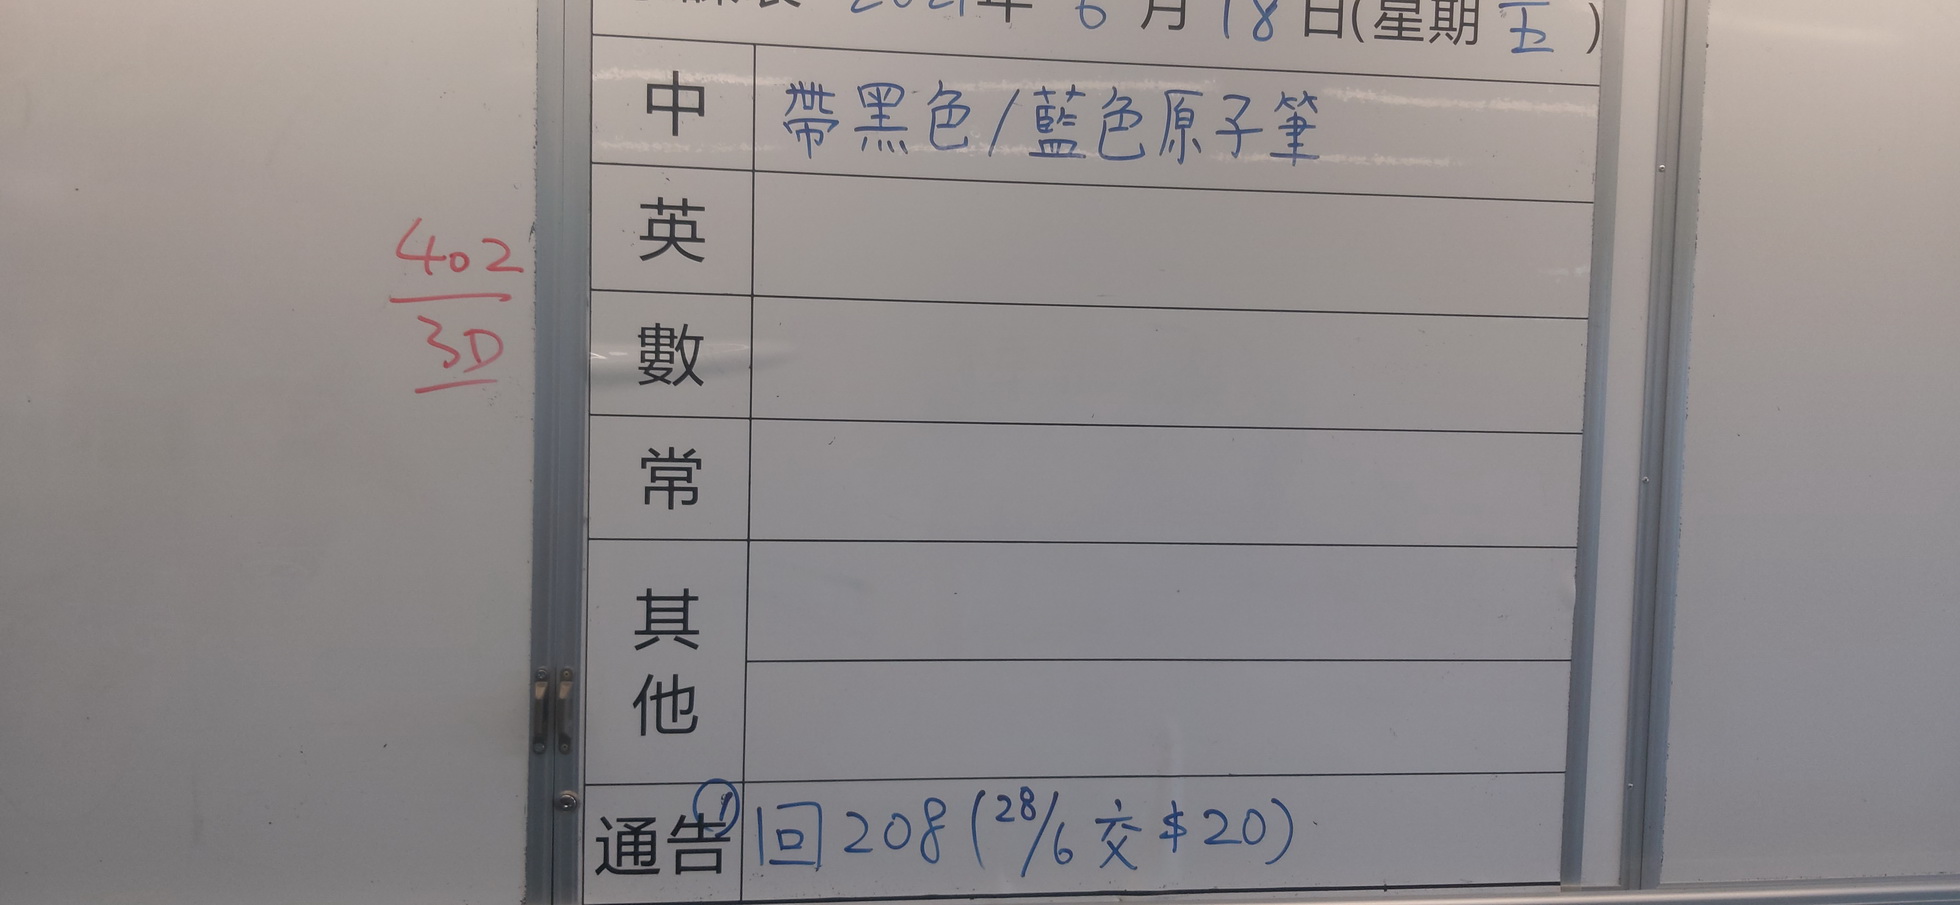 2021年 6 月 18 日(星期 五 )
中 帶黑色/藍色原子筆
英
402
數
3D
常
其
他
通告 ① 回 208 (28/6 交 $20)